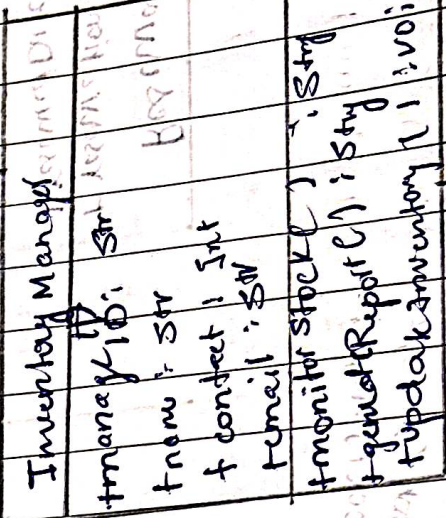 Inventory Manager
+manager ID: Str
+name : Str
+ contact : Int
+email : Str
+monitor Stock( ) : Str
+generateReport( ) : Str
+updateInventory ( ) : voi